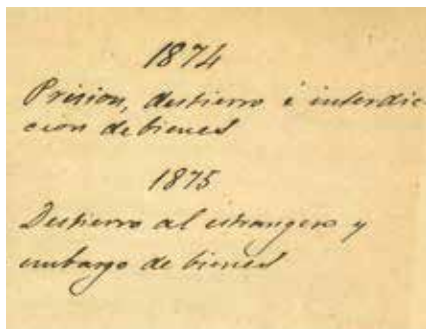 1874
Prision, destierro é interdic
cion de bienes
1875
Destierro al estrangero y
embargo de bienes